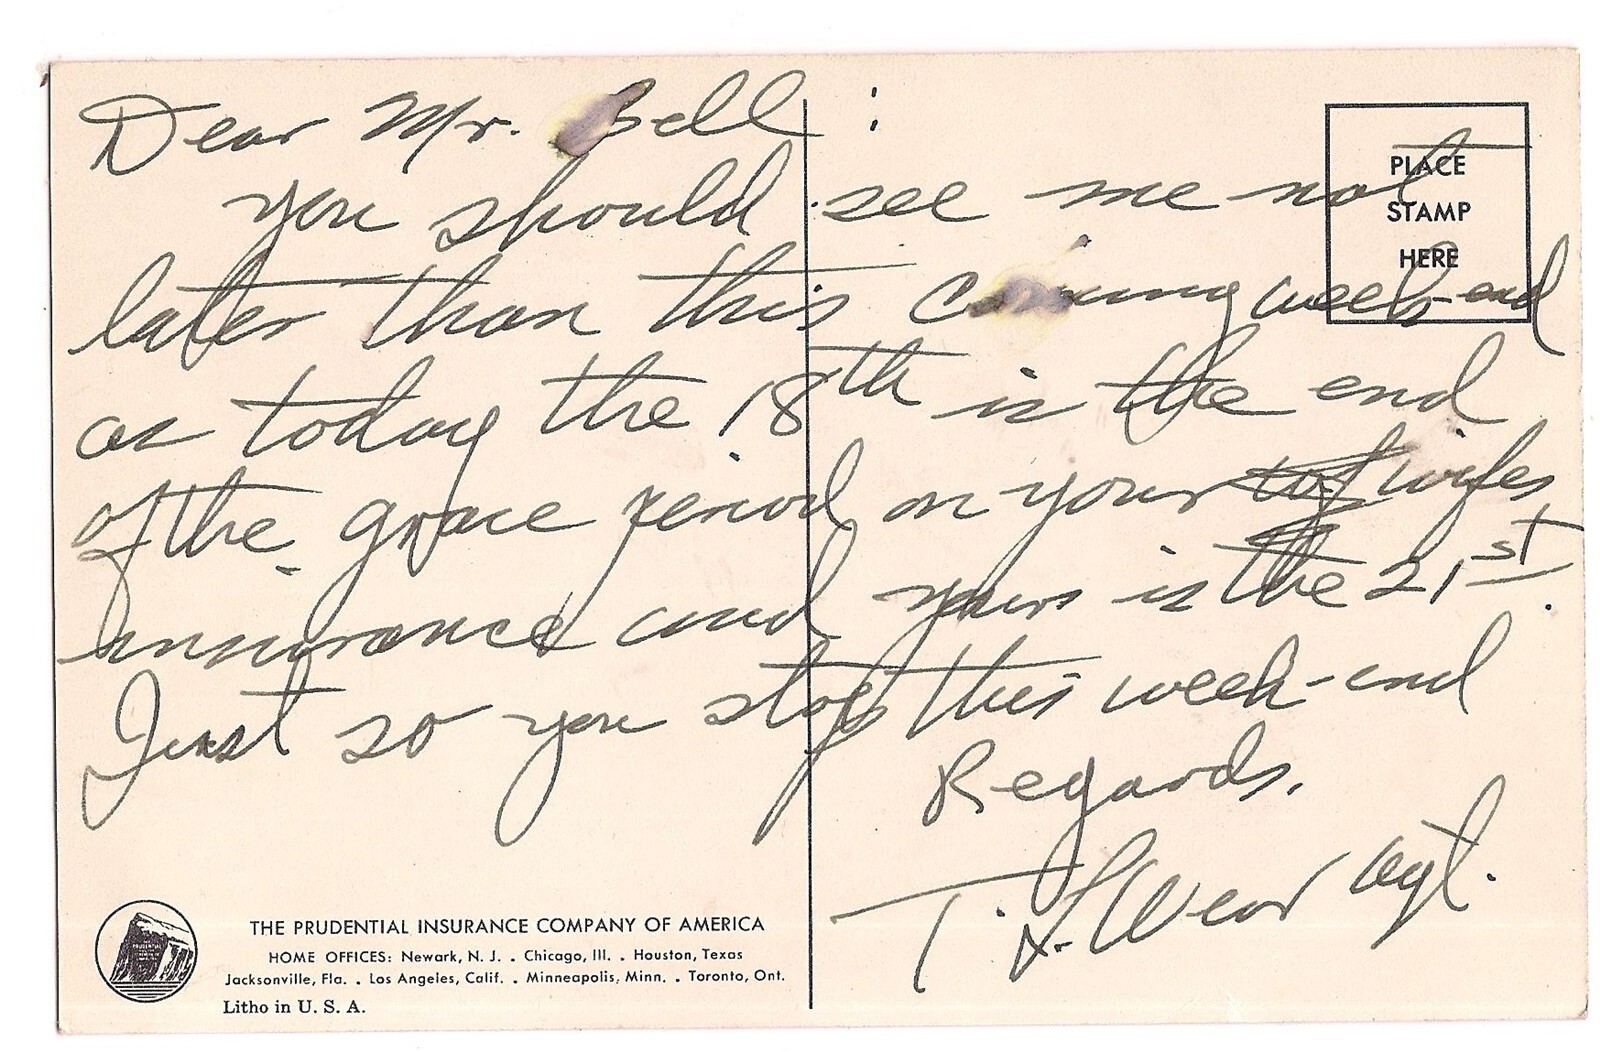 Dear Mr. Bell :
you should see me not
later than this coming week-end
as today the 18th is the end
of the grace period on your wifes
insurance and yours is the 21st.
Just so you stop this week-end
Regards.
T. L. Wear Agt.
PLACE
STAMP
HERE
THE PRUDENTIAL INSURANCE COMPANY OF AMERICA
HOME OFFICES: Newark, N. J. . Chicago, Ill. . Houston, Texas
Jacksonville, Fla. . Los Angeles, Calif. . Minneapolis, Minn. . Toronto, Ont.
Litho in U. S. A.